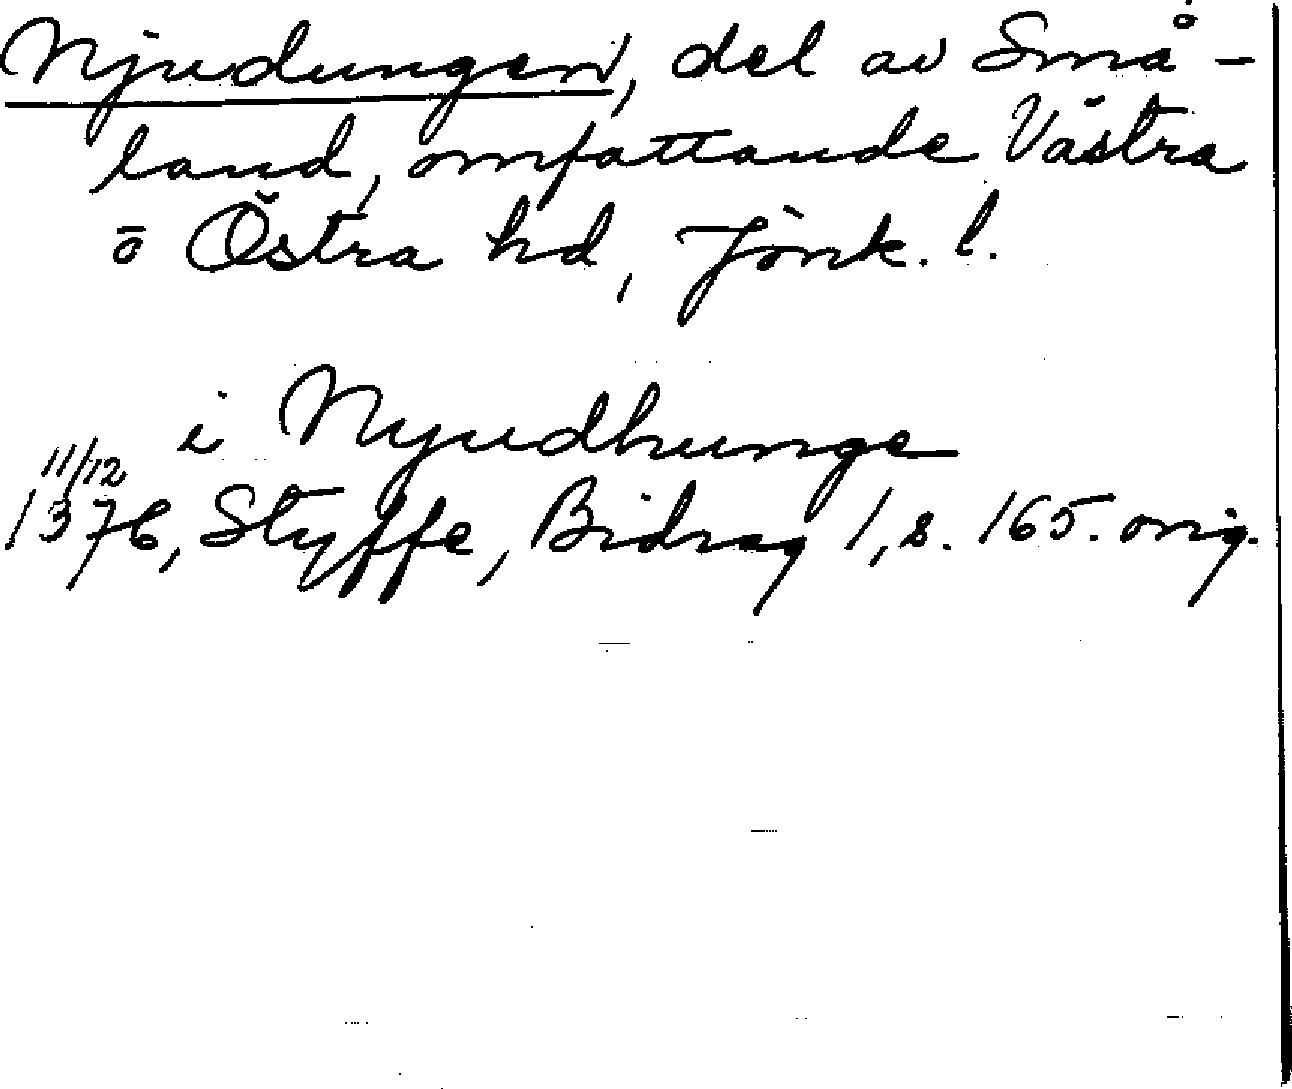 Njudungen, del av Små-
land, omfattande Västra
o Östra hd, Jönk. l.
i Nyudhunge
11/12
1376, Styffe, Bidrag 1, s. 165. orig.